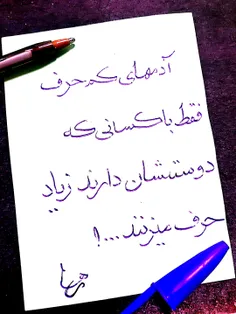 آدمهای کم حرف
فقط با کسانی که
دوستشان دارند زیاد
حرف میزنند...!